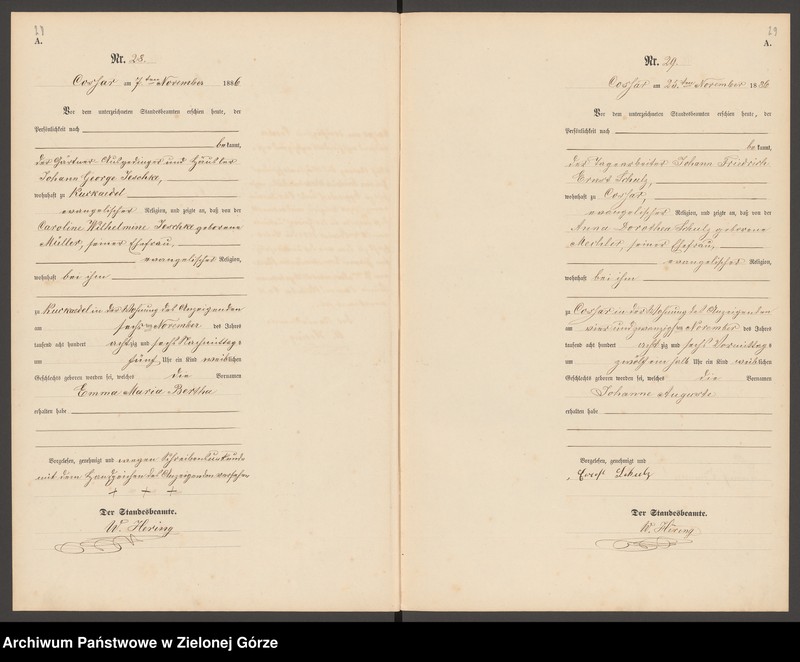 28
A.
Nr. 28.
Cossar am 7ten November 1886
Vor dem unterzeichneten Standesbeamten erschien heute, der
Persönlichkeit nach
bekannt,
der Gärtner Ausgedinger und Häusler
Johann George Jeschke,
wohnhaft zu Kurkaedel
evangelischer Religion, und zeigte an, daß von der
Caroline Wilhelmine Jeschke geborene
Müller, seiner Ehefrau,
evangelischer Religion,
wohnhaft bei ihm
zu Kurkaedel in der Wohnung des Anzeigenden
am sechsten November des Jahres
tausend acht hundert achtzig und sechs Nachmittags
um fünf Uhr ein Kind weiblichen
Geschlechts geboren worden sei, welches die Vornamen
Emma Maria Bertha
erhalten habe
Vorgelesen, genehmigt und wegen Schreibensunkunde
mit dem Handzeichen des Anzeigenden versehen
+ + +
Der Standesbeamte.
W. Hering
29
A.
Nr. 29.
Cossar am 25ten November 1886
Vor dem unterzeichneten Standesbeamten erschien heute, der
Persönlichkeit nach
bekannt,
der Tagearbeiter Johann Friedrich
Ernst Schulz,
wohnhaft zu Cossar,
evangelischer Religion, und zeigte an, daß von der
Anna Dorothea Schulz geborene
seiner Ehefrau,
evangelischer Religion,
wohnhaft bei ihm
zu Cossar in der Wohnung des Anzeigenden
am vierundzwanzigsten November des Jahres
tausend acht hundert achtzig und sechs Vormittags
um zwölf Uhr ein Kind weiblichen
Geschlechts geboren worden sei, welches die Vornamen
Johanne Auguste
erhalten habe
Vorgelesen, genehmigt und
Ernst Schulz
Der Standesbeamte.
W. Hering
Archiwum Państwowe w Zielonej Górze